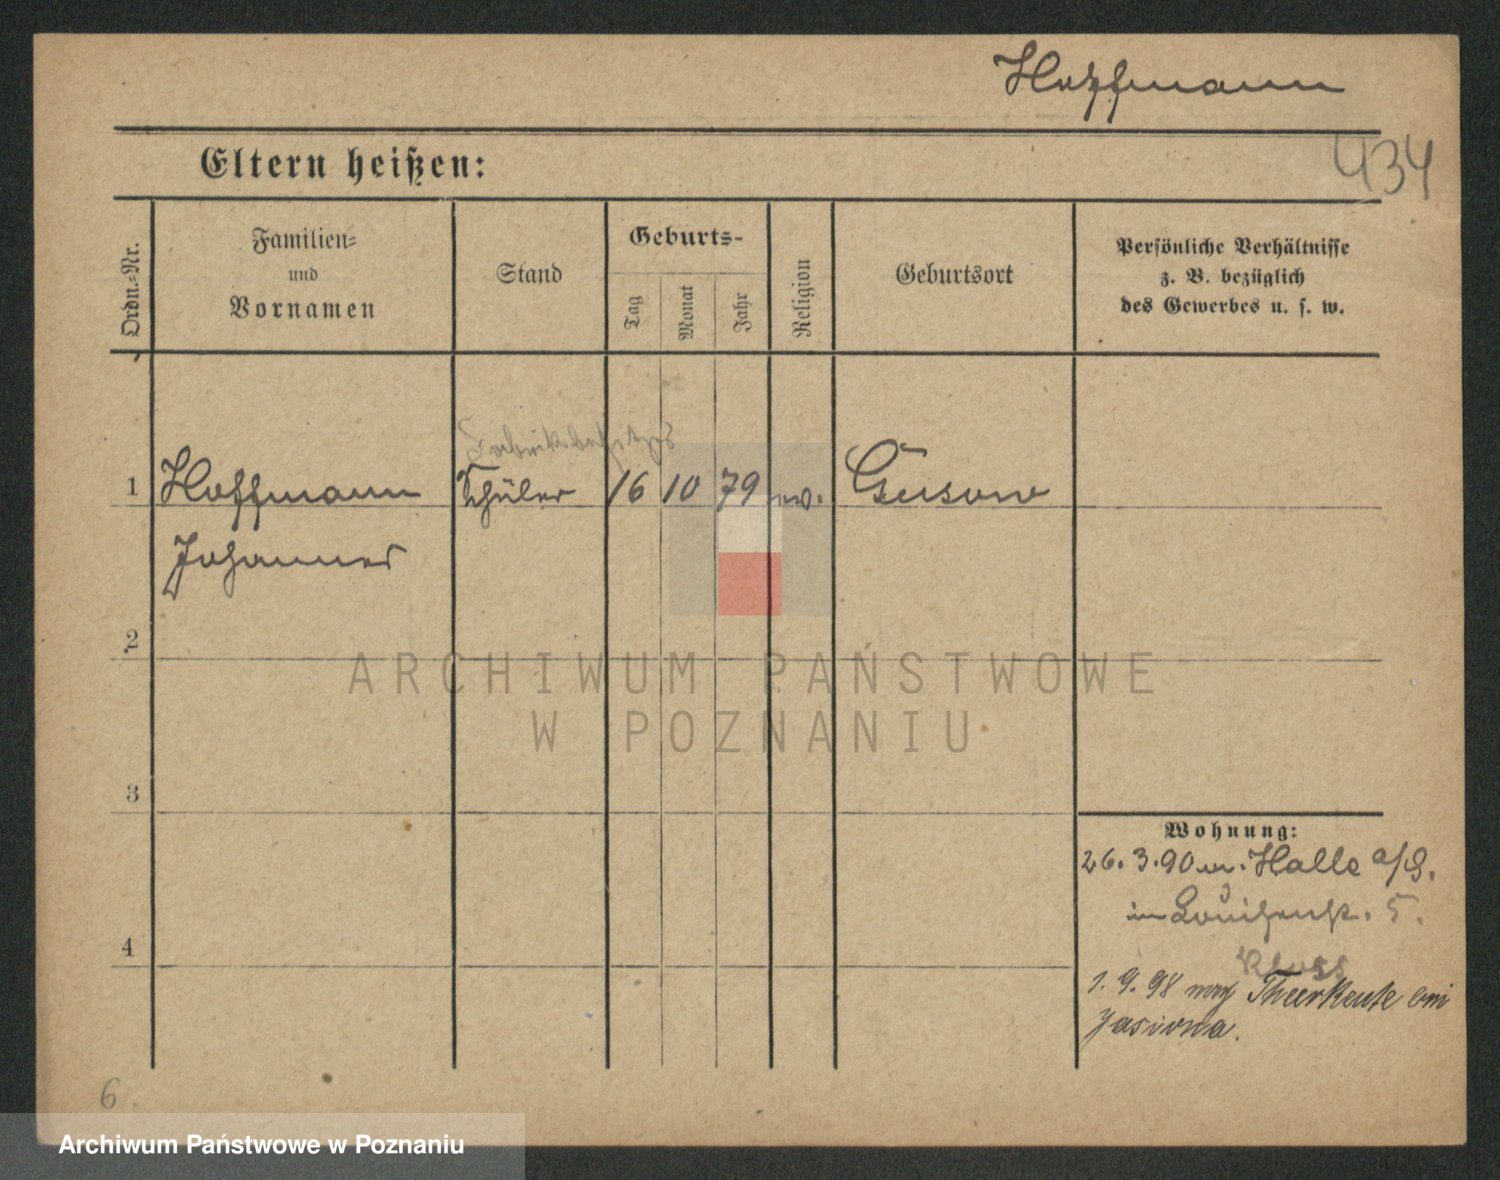 Hoffmann
434
Eltern heißen:
Ordn.-Nr.
Familien-
und
Vornamen
Stand
Geburts-
Tag
Monat
Jahr
Religion
Geburtsort
Persönliche Verhältnisse
z. B. bezüglich
des Gewerbes u. s. w.
1 Hoffmann Schüler 16 10 79 ev. Gusow
Johannes
2
ARCHIWUM PAŃSTWOWE
W POZNANIU
3
Wohnung:
26. 3. 90 Halle a/S.
Louisenstr. 5.
4
1. 9. 98 nach Theerkeute bei
6
Archiwum Państwowe w Poznaniu